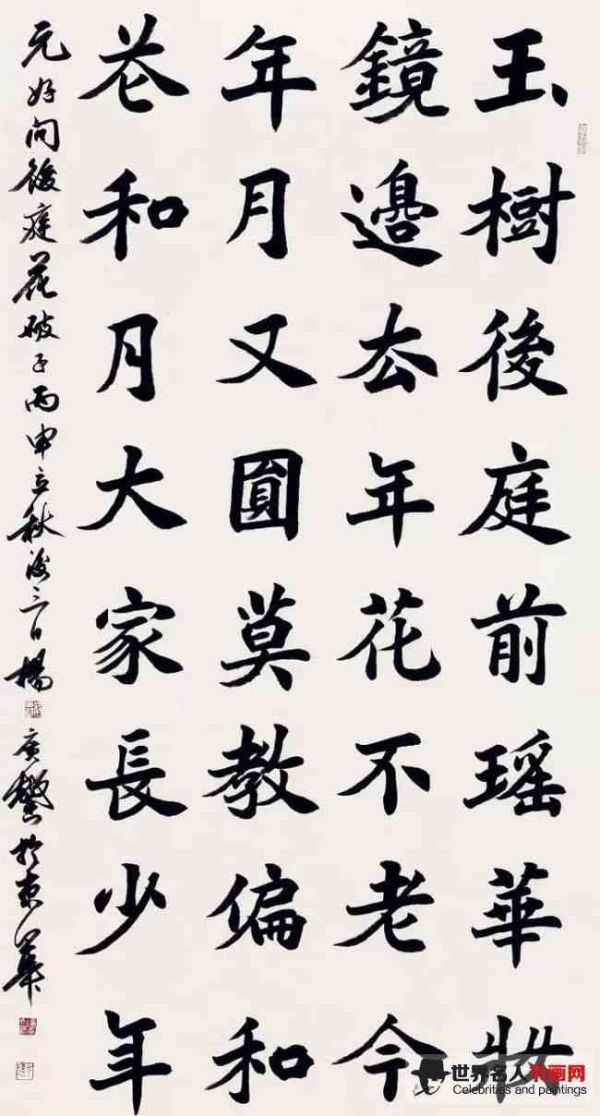 玉樹後庭前瑶華妝
鏡邊去年花不老今
年月又圓莫教偏和
花和月大家長少年
元好问後庭花破子丙申立秋後三日楊广馨於京華
世界名人书画网
Celebrities and paintings